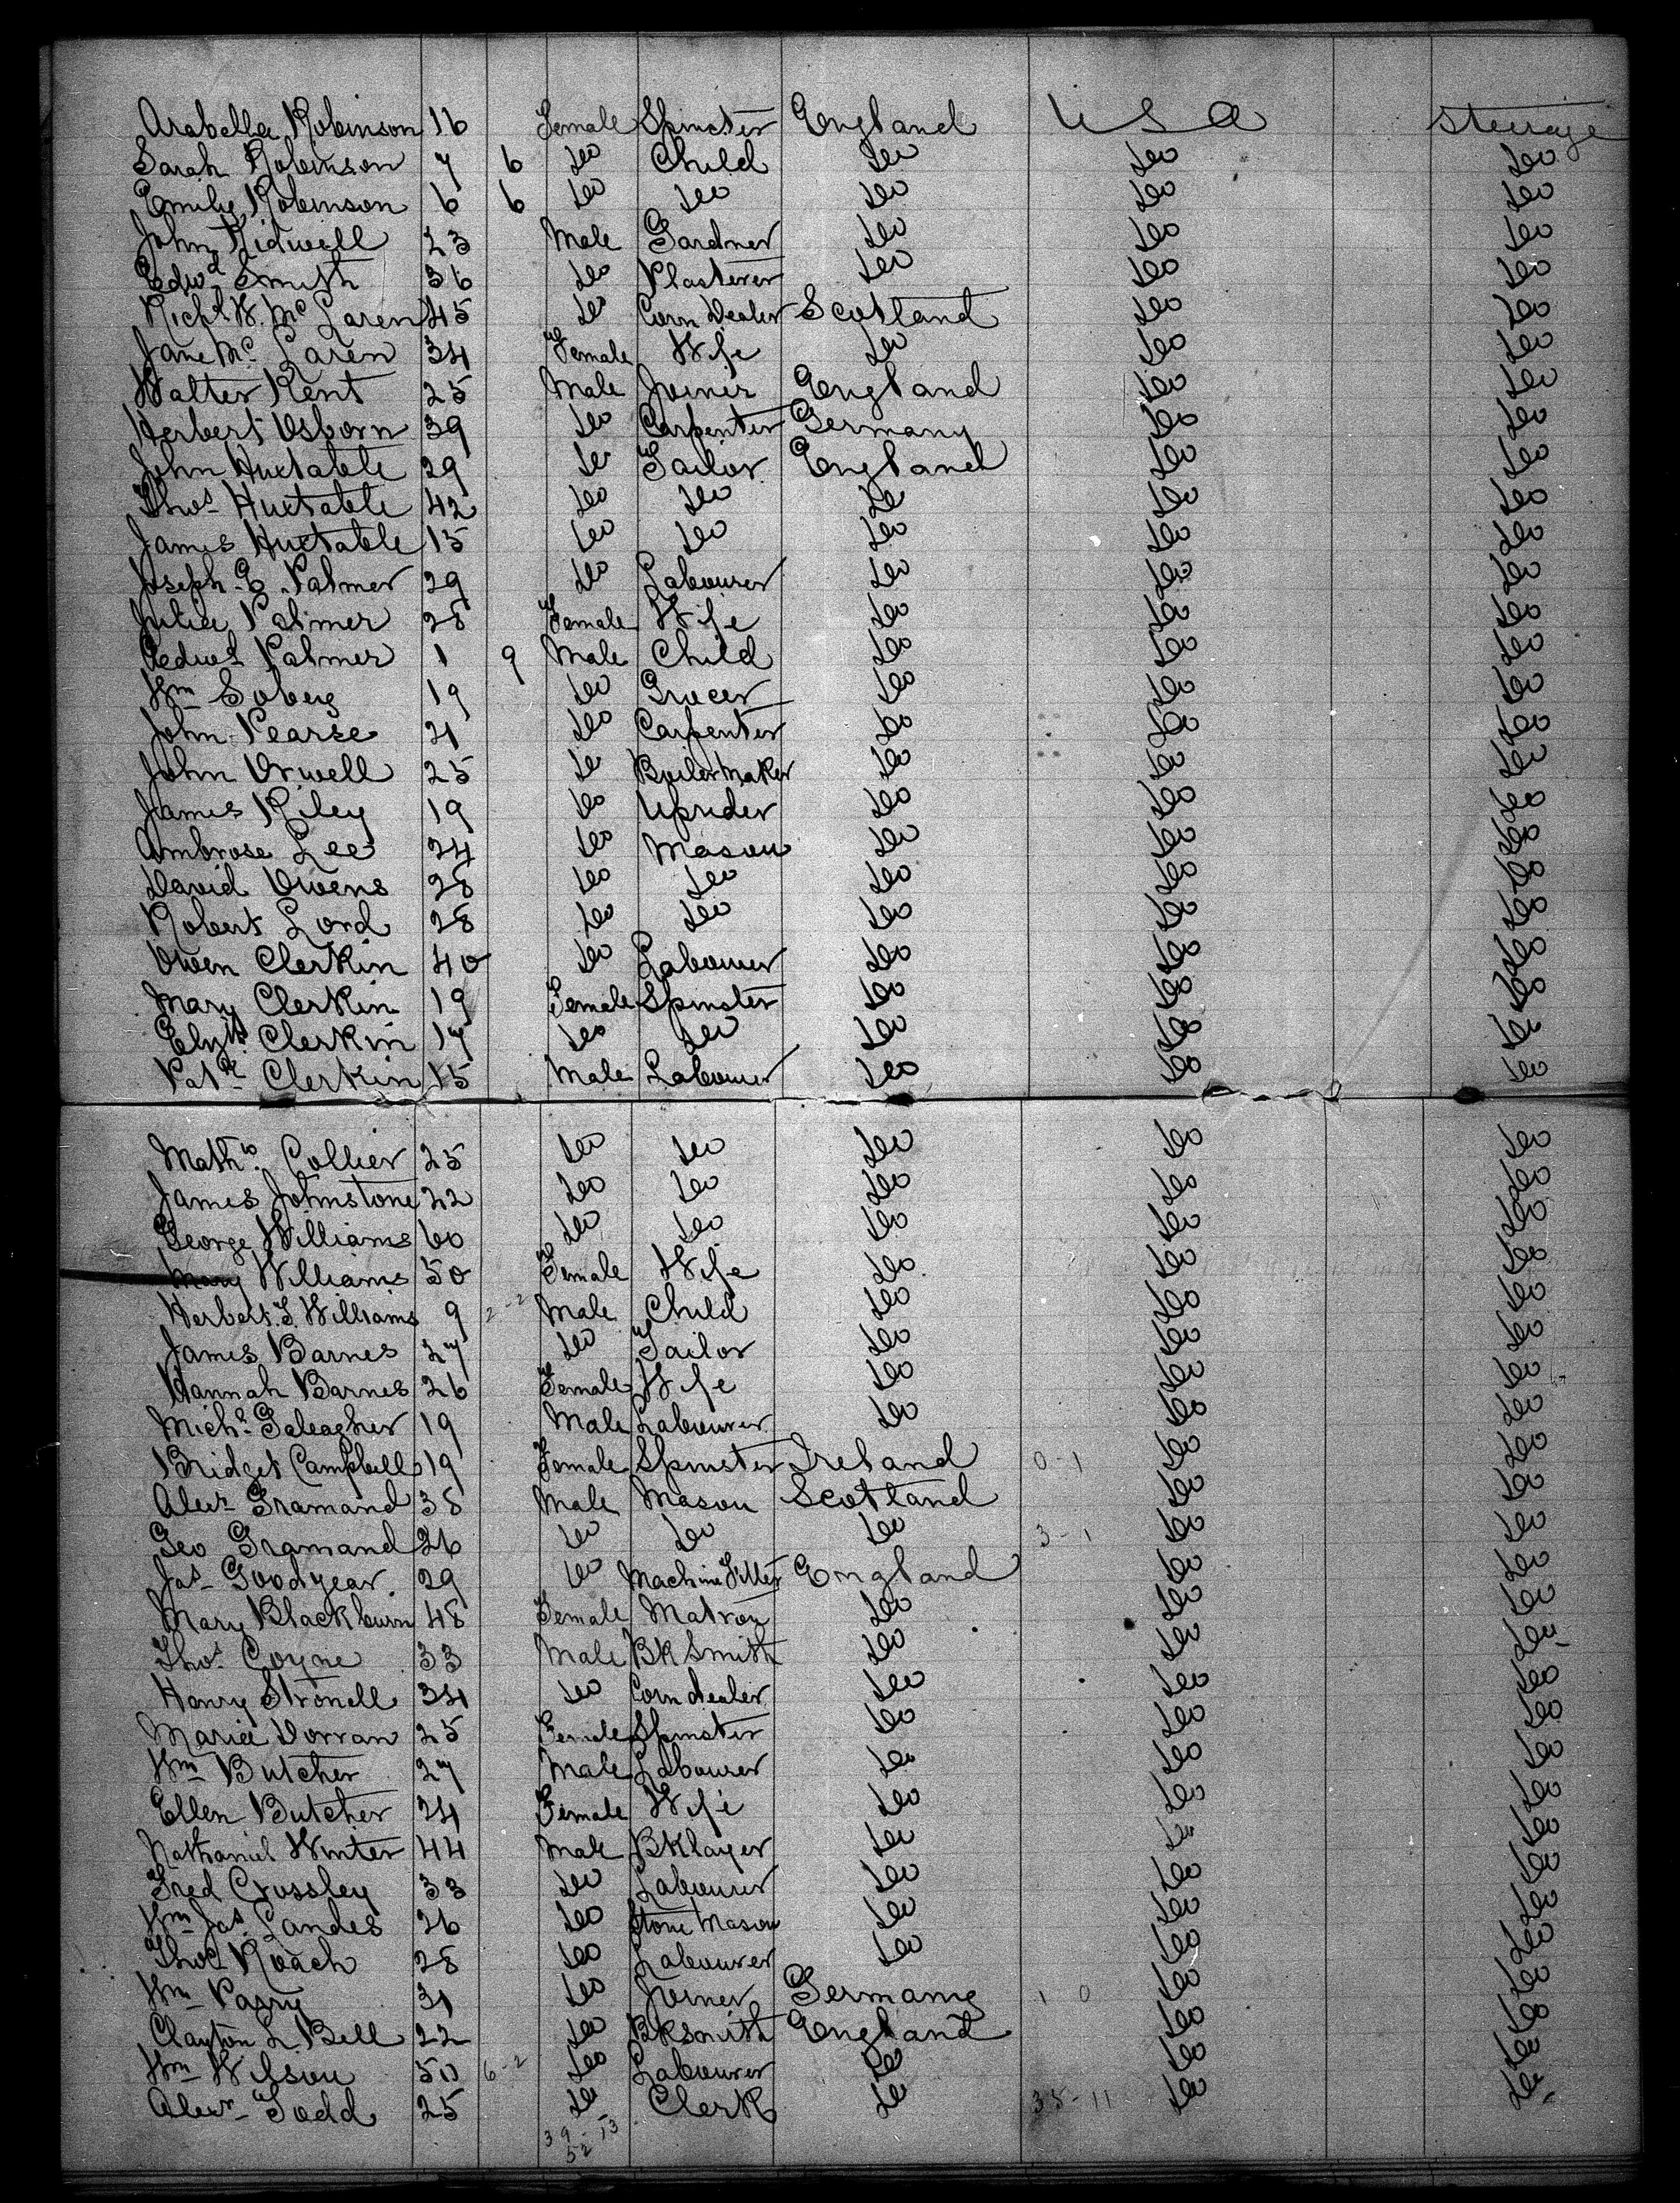 Arabella Robinson 16 Female Spinster England U S A Steerage
Sarah Robinson 7 6 Do Child Do Do Do
Emily Robinson 6 6 Do Do Do Do Do
John Kidwell 23 Male Gardner Do Do Do
Edwd Smith 36 Do Plasterer Do Do Do
Richd W. Mc Laren 45 Do Corn Dealer Scotland Do Do
Jane Mc Laren 34 Female Wife Do Do Do
Walter Kent 25 Male Joiner England Do Do
Herbert Osborn 39 Do Carpenter Germany Do Do
John Huxtable 29 Do Tailor England Do Do
Thos Huxtable 42 Do Do Do Do Do
James Huxtable 15 Do Do Do Do Do
Joseph E. Palmer 29 Do Labourer Do Do Do
Julia Palmer 28 Female Wife Do Do Do
Edwd Palmer 1 9 Male Child Do Do Do
Wm Sobey 19 Do Grocer Do Do Do
John Pearse 21 Do Carpenter Do Do Do
John Orwell 25 Do Boiler Maker Do Do Do
James Riley 19 Do Do Do Do
Ambrose Lee 24 Do Mason Do Do Do
David Owens 28 Do Do Do Do Do
Robert Lord 28 Do Do Do Do Do
Owen Clerkin 40 Do Labourer Do Do Do
Mary Clerkin 19 Female Spinster Do Do Do
Elizth Clerkin 17 Do Do Do Do Do
Patk Clerkin 15 Male Labourer Do Do Do
Mathw Collier 25 Do Do Do Do Do
James Johnstone 22 Do Do Do Do Do
George Williams 60 Do Do Do Do Do
Mary Williams 50 Female Wife Do Do Do
Herbert J. Williams 9 2-2 Male Child Do Do Do
James Barnes 27 Do Tailor Do Do Do
Hannah Barnes 26 Female Wife Do Do Do
Michl Galeagher 19 Male Labourer Do Do Do
Bridget Campbell 19 Female Spinster Ireland 0-1 Do Do
Alexr Gramand 38 Male Mason Scotland Do Do
Geo Gramand 26 Do Do Do 3-1 Do Do
Jas Goodyear 29 Do Machine Fitter England Do Do
Mary Blackburn 48 Female Matron Do Do Do
Thos Coyne 33 Male BK Smith Do Do Do
Henry Stronell 34 Do Corn dealer Do Do Do
Maria Dorran 25 Female Spinster Do Do Do
Wm Butcher 27 Male Labourer Do Do Do
Ellen Butcher 24 Female Wife Do Do Do
Nathaniel Winter 44 Male BKlayer Do Do Do
Fred Crossley 33 Do Labourer Do Do Do
Wm Jas Landes 26 Do Stone Mason Do Do Do
Thos Roach 28 Do Labourer Do Do Do
Wm Parry 31 Do Joiner Germany 1 0 Do Do
Clayton L. Bell 22 Do BKsmith England Do Do
Wm Wilson 50 6-2 Do Labourer Do Do Do
Alexr Todd 25 Do Clerk Do 35-11 Do Do
39-13
52